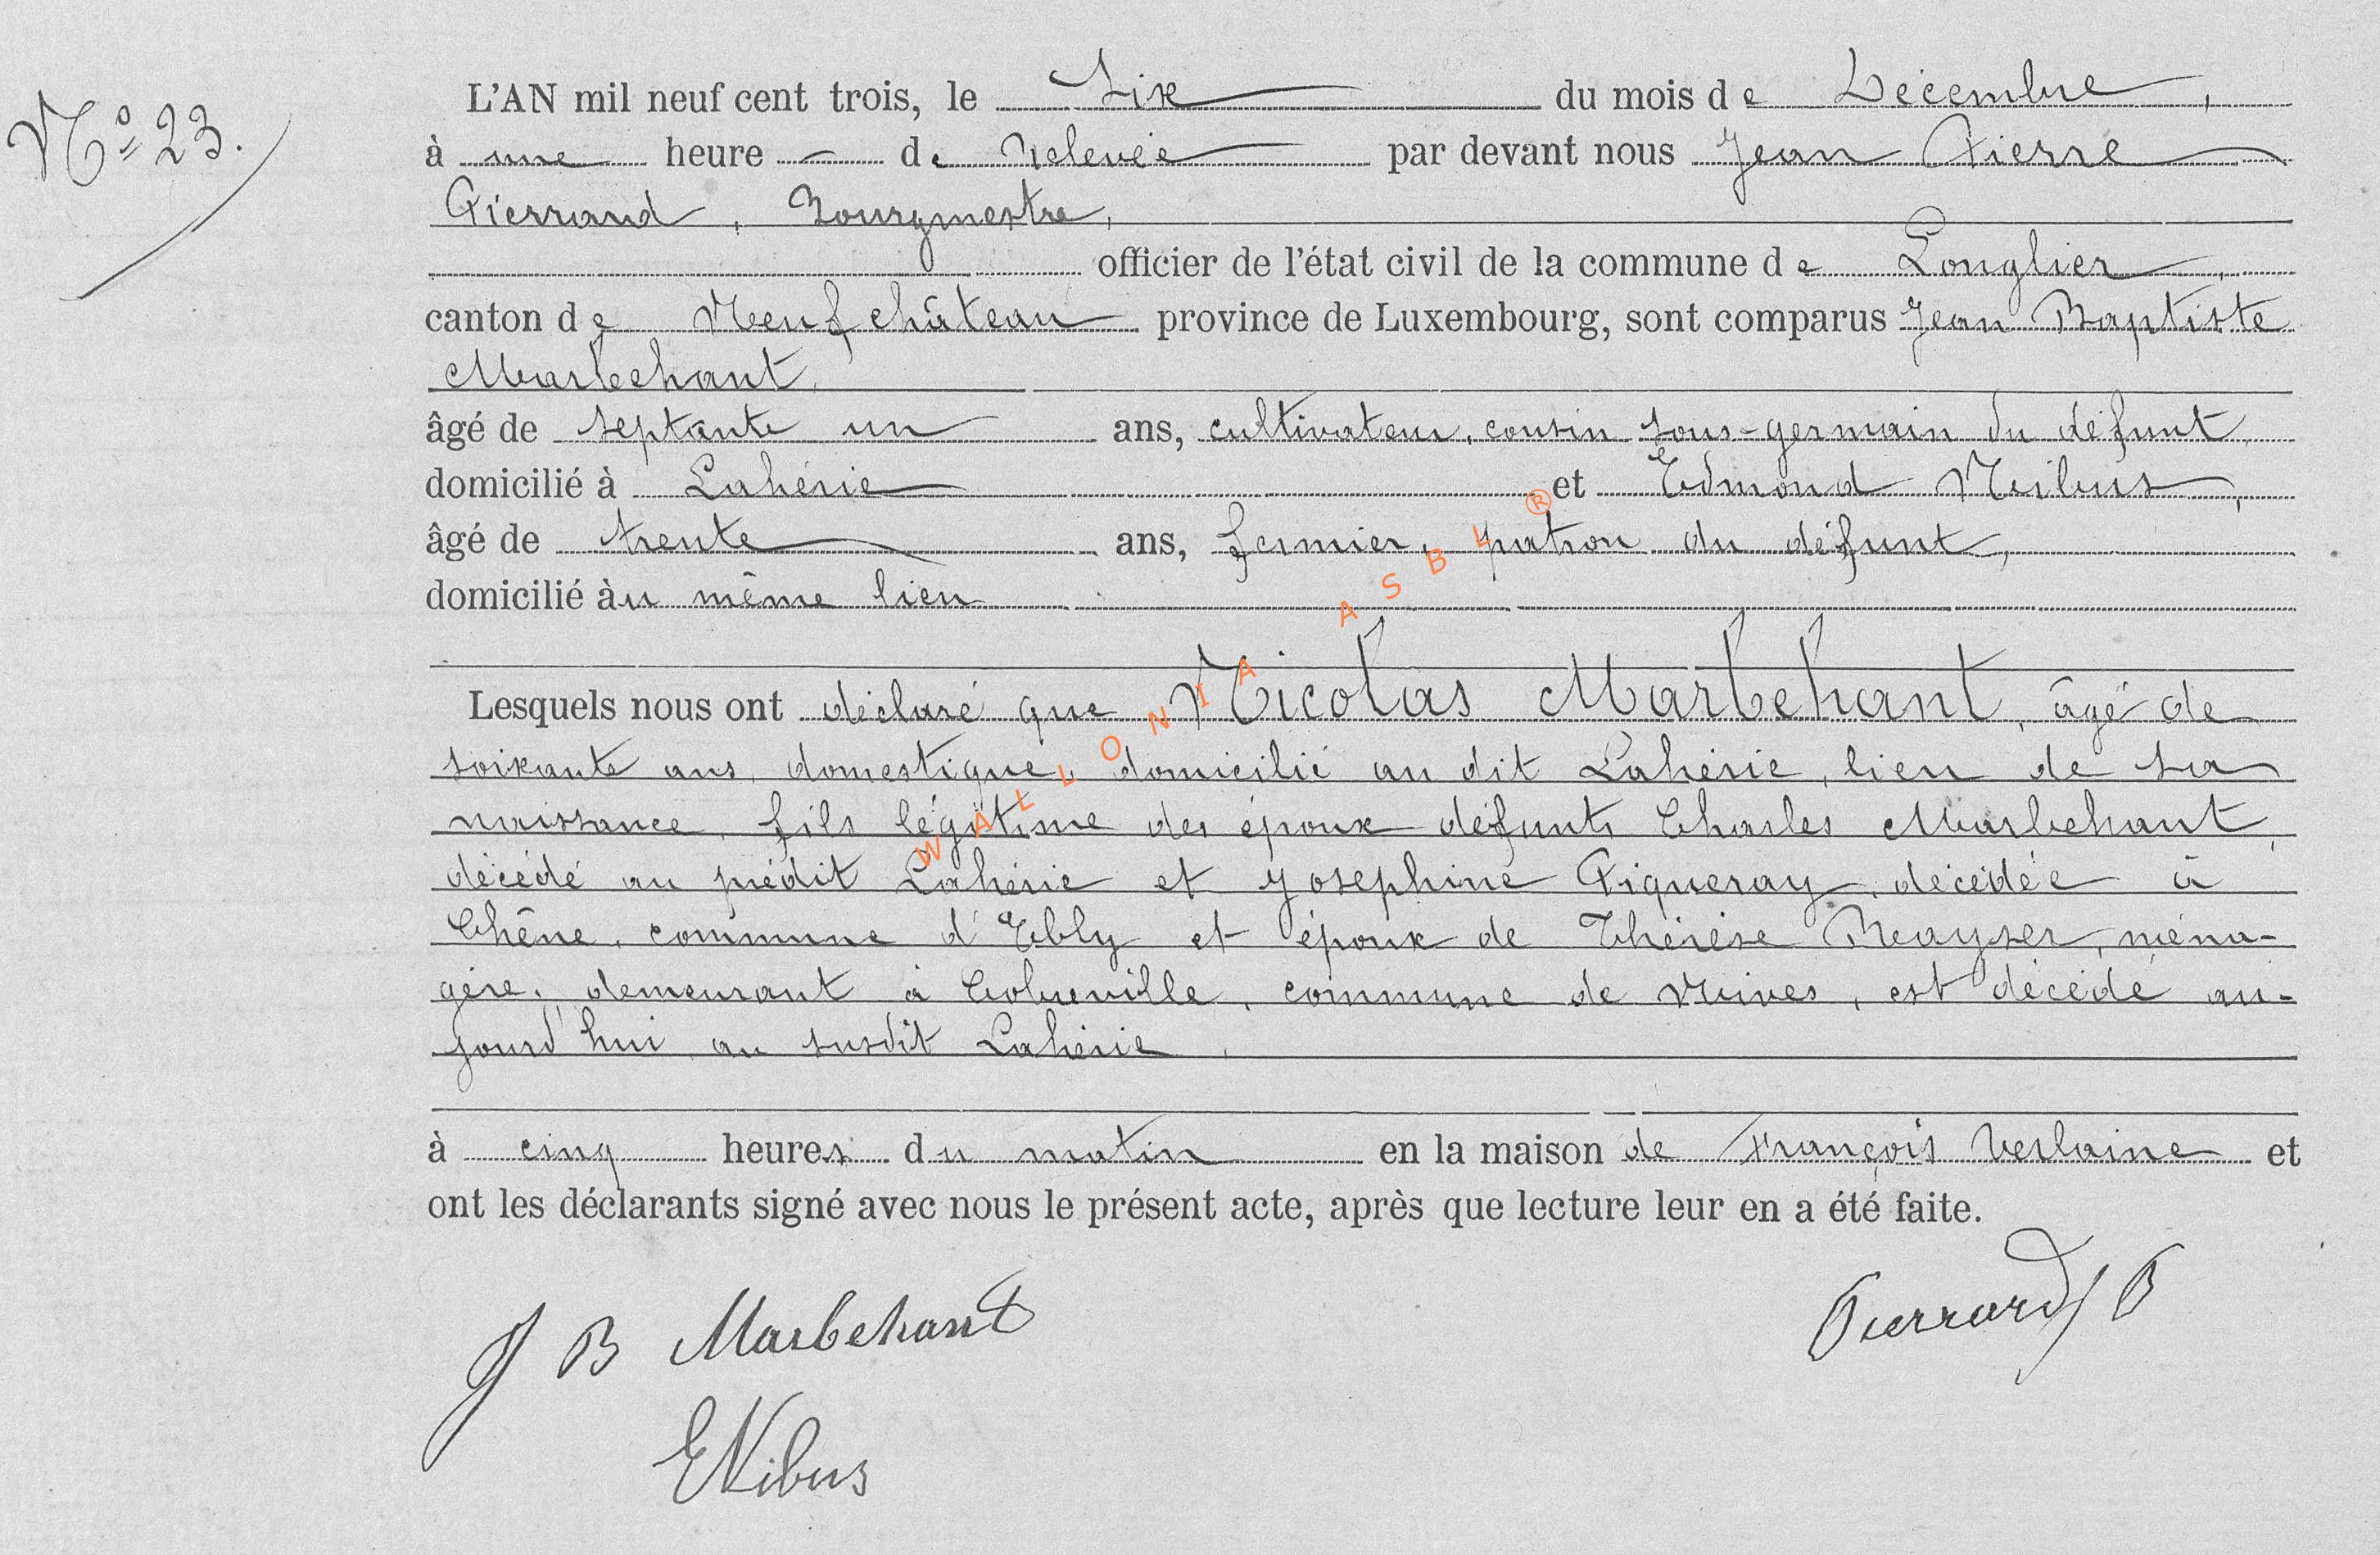 Nº 23.
L'AN mil neuf cent trois, le Six du mois de Décembre,
à une heure – de relevée par devant nous Jean Pierre
Pierrard, Bourgmestre,
officier de l'état civil de la commune de Longlier,
canton de Neufchâteau province de Luxembourg, sont comparus Jean Baptiste
Marbehant,
âgé de septante un ans, cultivateur, cousin sous-germain du défunt,
domicilié à Lahérie et Edmond Nibus,
âgé de trente ans, fermier, patron du défunt,
domicilié àu même lieu
Lesquels nous ont déclaré que Nicolas Marbehant, âgé de
soixante ans, domestique, domicilié au dit Lahérie, lieu de sa
naissance, fils légitime des époux défunts Charles Marbehant,
décédé au prédit Lahérie et Joséphine Piqueray, décédée à
Chêne, commune d'Ebly et époux de Thérèse Reayser, ména-
gère, demeurant à Cobreville, commune de Nives, est décédé au-
jourd'hui au susdit Lahérie,
à cinq heures du matin en la maison de François Verlaine et
ont les déclarants signé avec nous le présent acte, après que lecture leur en a été faite.
J B Marbehant
Pierrard J B
E Nibus
WALLONIA ASBL ®